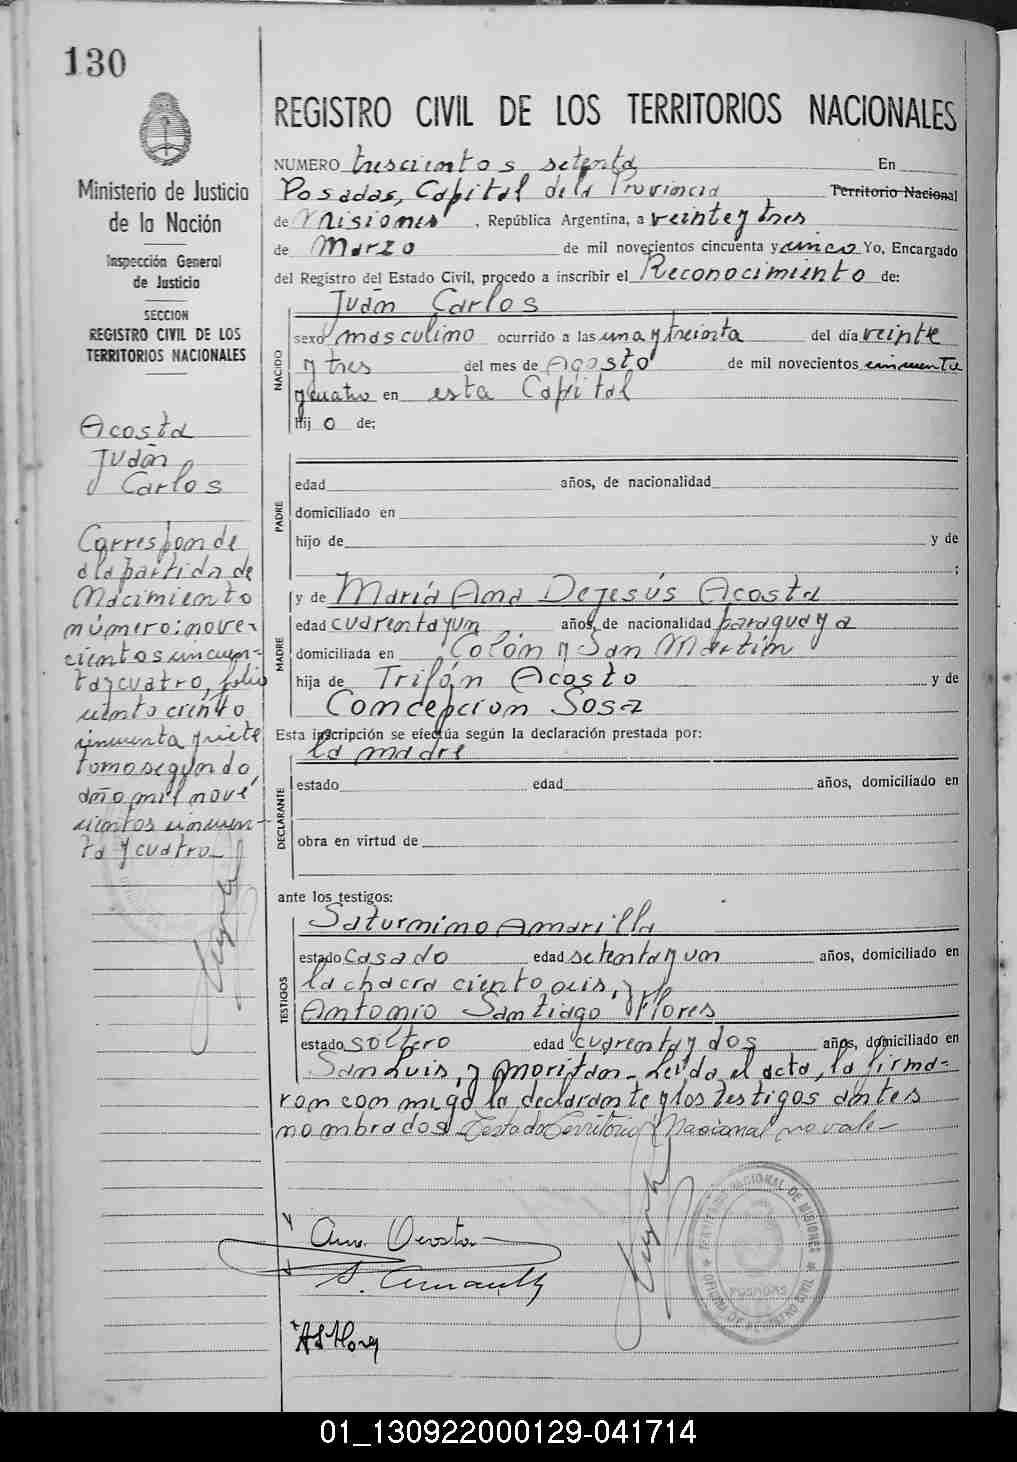 130
Ministerio de Justicia
de la Nación
Inspección General
de Justicia
SECCION
REGISTRO CIVIL DE LOS
TERRITORIOS NACIONALES
Acosta
Juán
Carlos
Corresponde
a la partida de
Nacimiento
número: nove-
cientos cincuen-
ta y cuatro, folio
ciento
cincuenta y siete
tomo segundo,
año mil nove
cientos cincuen-
ta y cuatro
REGISTRO CIVIL DE LOS TERRITORIOS NACIONALES
NUMERO trescientos setenta En
Posadas, Capital de la Provincia Territorio Nacional
de Misiones, República Argentina, a veinte y tres
de Marzo de mil novecientos cincuenta y cinco Yo, Encargado
del Registro del Estado Civil, procedo a inscribir el Reconocimiento de:
Juán Carlos
NACIDO
sexo masculino ocurrido a las una y treinta del día veinte
y tres del mes de Agosto de mil novecientos cincuenta
y cuatro en esta Capital
Hij o de:
PADRE
edad años, de nacionalidad
domiciliado en
hijo de y de
;
MADRE
y de María Ana Dejesús Acosta
edad cuarenta y un años, de nacionalidad paraguaya
domiciliada en Colón y San Martín
hija de Trifón Acosta y de
Concepcion Sosa
Esta inscripción se efectúa según la declaración prestada por:
la madre
DECLARANTE
estado edad años, domiciliado en
obra en virtud de
ante los testigos:
TESTIGOS
Saturnino Amarilla
estado casado edad setenta y un años, domiciliado en
la chacra ciento seis, y
Antonio Santiago Flores
estado soltero edad cuarenta y dos años, domiciliado en
San Luis, y . Leída el acta, la firma-
ron conmigo la declarante y los testigos antes
nombrados. Testado Territorio Nacional no vale-
Ana Acosta
A S Flores
TERRITORIO NACIONAL DE MISIONES
POSADAS
OFICINA DE REGISTRO CIVIL
01_130922000129-041714